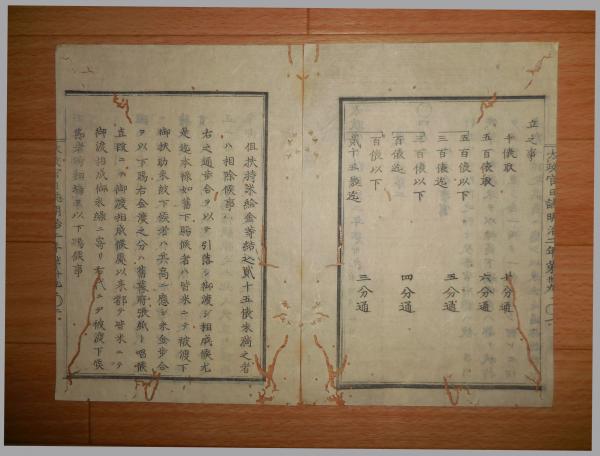 太政官日誌明治二年第十九
立之事
千俵取 七分通
五百俵取 六分通
五百俵以下
三百俵迄 五分通
三百俵以下
百俵迄 四分通
百俵以下
貳十五俵迄 三分通
但扶持米給金等結込貳十五俵未満之者
ハ相除候事
右之通歩合ヲ以テ引落シ御渡シ相成候尤
是迄本俵如舊下賜候者ハ皆米ニテ被渡下
御扶助米敷下候者ハ其高ニ應シ米金歩合
ヲ以下賜右金渡之分ハ舊幕府張紙ト唱候
直段ニテ御渡相成候處以来都テ皆米ニテ
御渡相成御永續ニ寄リ右式ニテ被渡下候
下賜候事